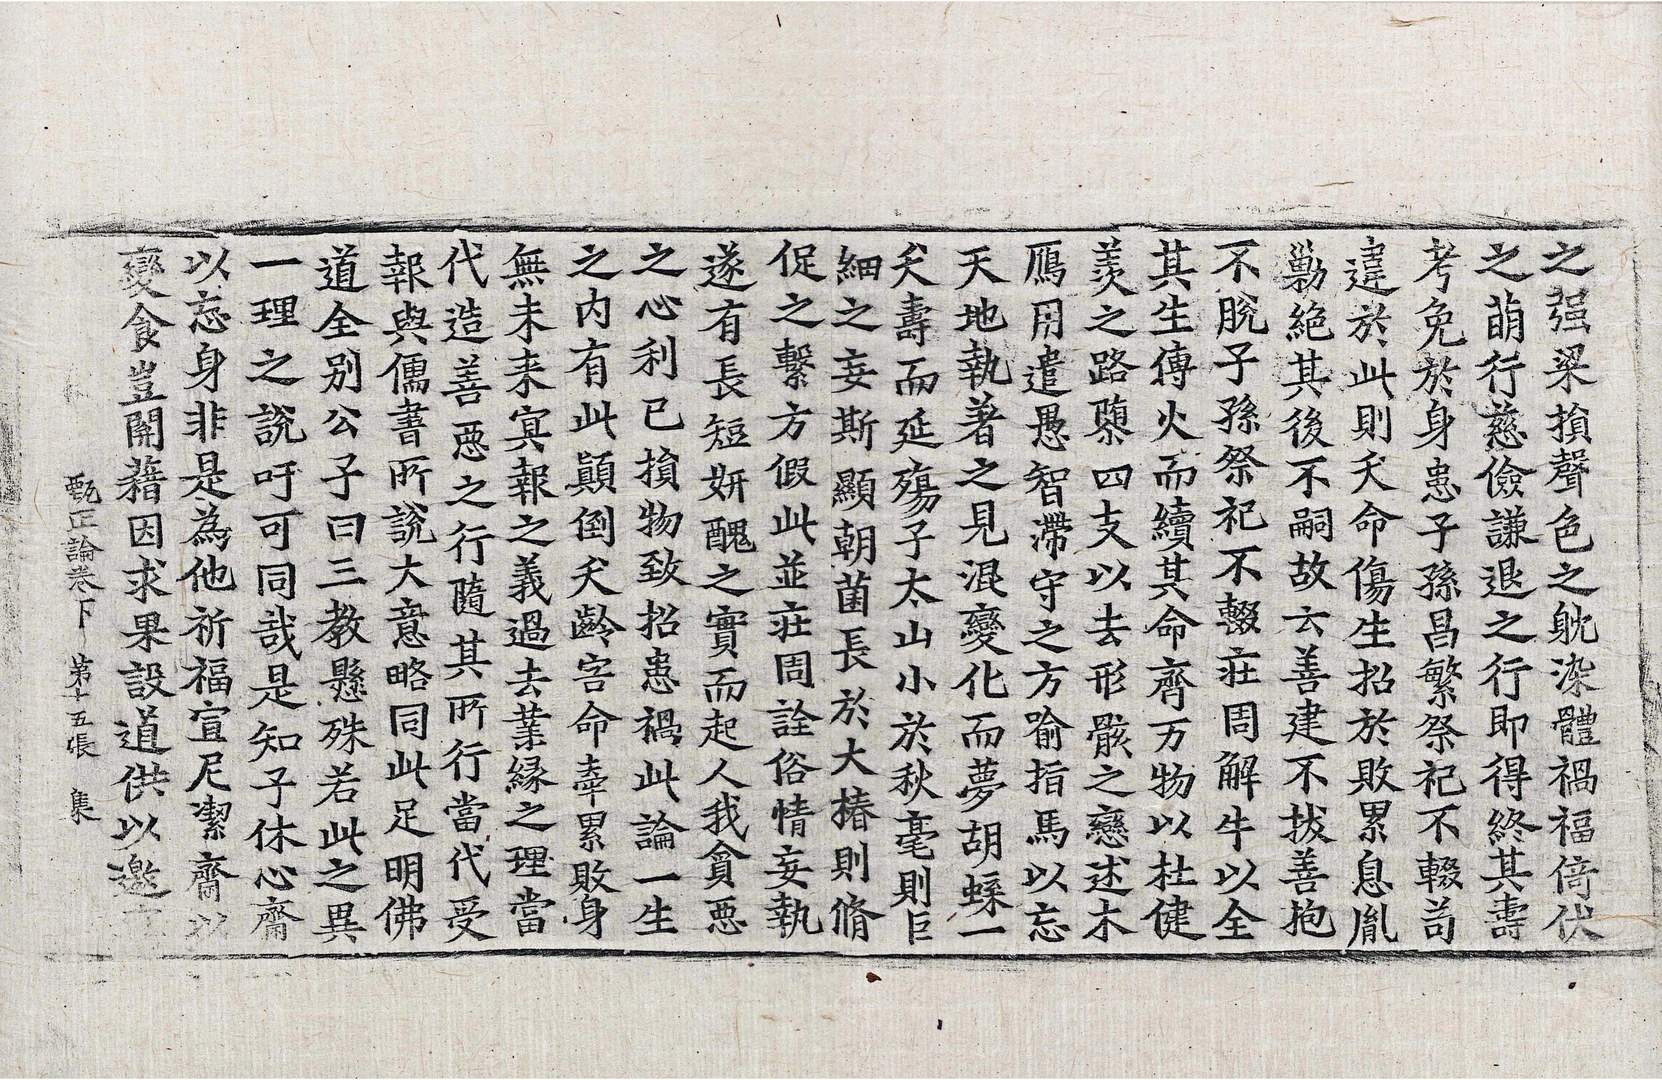 之强梁損聲色之躭染體禍福倚伏
之萠行慈儉謙退之行即得終其壽
考免於身患子孫昌繁祭祀不輟苟
違於此則夭命傷生招於敗累息胤
勦絶其後不嗣故云善建不拔善抱
不脫子孫祭祀不輟莊周解牛以全
其生傳火而續其命齊万物以杜健
羨之路隳四支以去形骸之戀述木
鴈用遣愚智滯守之方喻指馬以忘
天地執著之見混變化而夢胡蝶一
夭壽而延殤子太山小於秋毫則巨
細之妄斯顯朝菌長於大椿則脩
促之繫方假此並莊周詮俗情妄執
遂有長短妍醜之實而起人我貪惡
之心利已損物致招患禍此論一生
之内有此顚倒夭齡害命牽累敗身
無未来㝠報之義過去業緣之理當
代造善惡之行隨其所行當代受
報與儒書所說大意略同此足明佛
道全别公子曰三教懸殊若此之異
一理之說吁可同哉是知子休心齋
以忘身非是為他祈福宣尼潔齋以
變食豈開藉因求果設道供以邀
甄正論卷下 第十五張 集